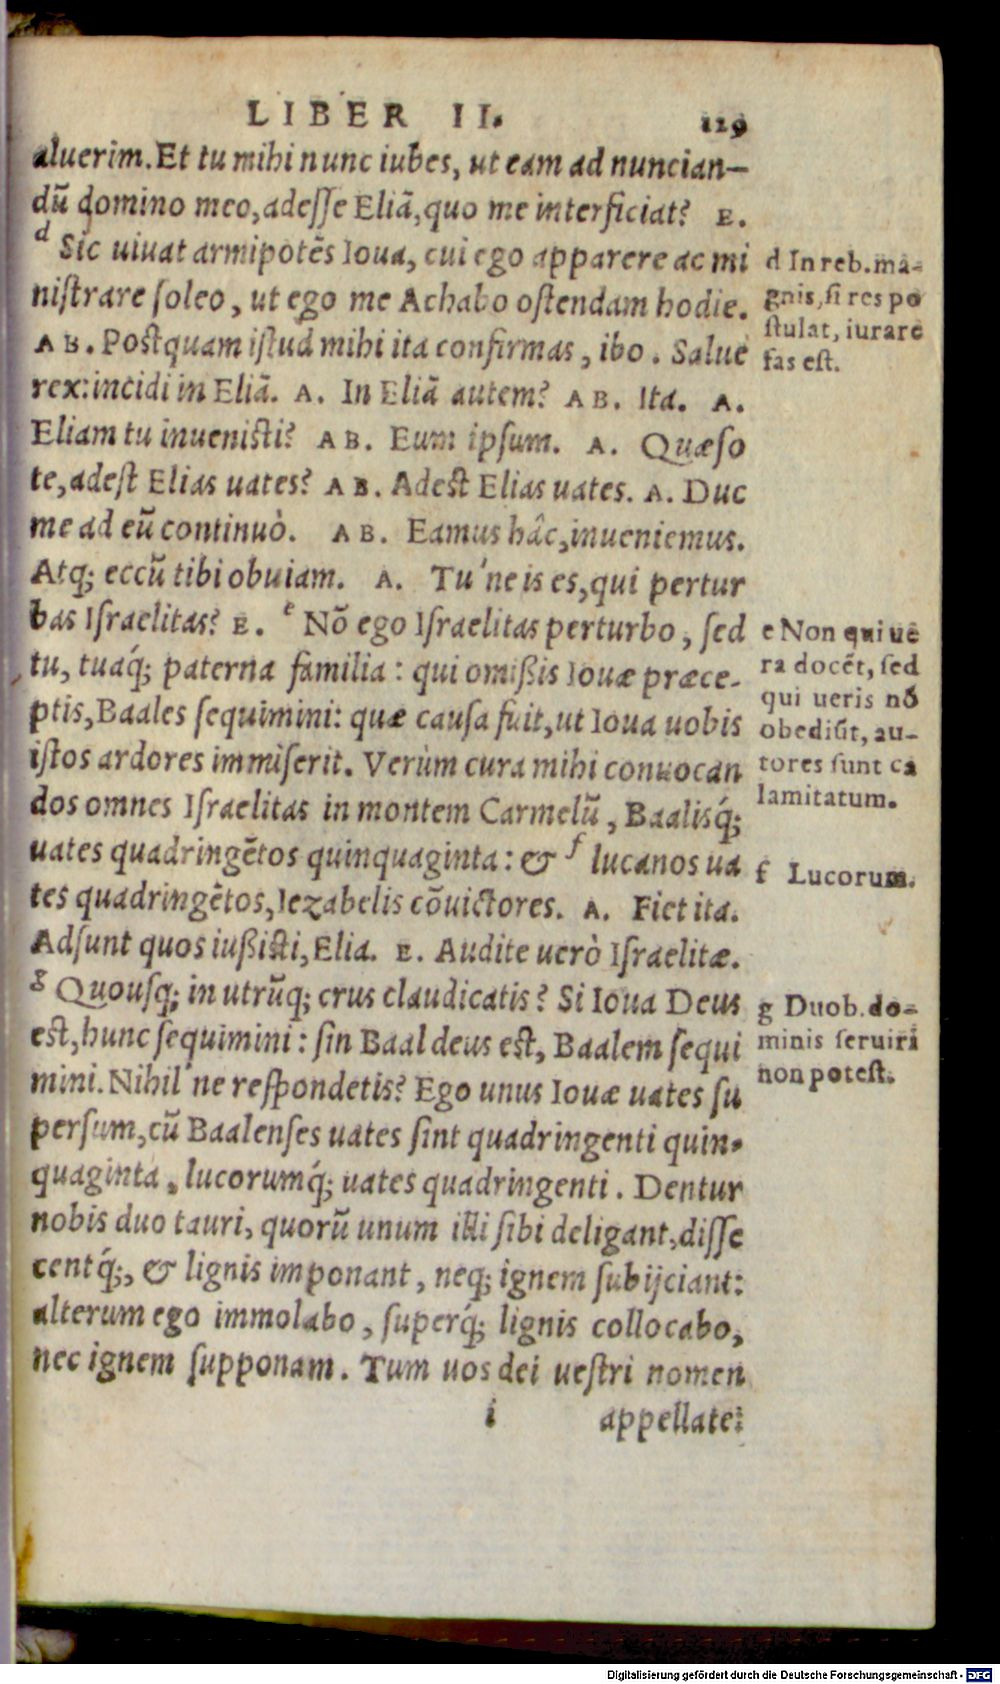 LIBER II. 129
aluerim. Et tu mihi nunc iubes, ut eam ad nuncian-
dũ domino meo, adesse Eliã, quo me interficiat? E.
d Sic uiuat armipotẽs Ioua, cui ego apparere ac mi
nistrare soleo, ut ego me Achabo ostendam hodie.
AB. Postquam istud mihi ita confirmas, ibo. Salue
rex: incidi in Eliã. A. In Eliã autem? AB. Ita. A.
Eliam tu inuenisti? AB. Eum ipsum. A. Quæso
te, adest Elias uates? AB. Adest Elias uates. A. Duc
me ad eũ continuò. AB. Eamus hâc, inueniemus.
Atq; eccũ tibi obuiam. A. Tu'ne is es, qui pertur
bas Israelitas? E. e Nõ ego Israelitas perturbo, sed
tu, tuaq́; paterna familia: qui omißis Iouæ præce-
ptis, Baales sequimini: quæ causa fuit, ut Ioua uobis
istos ardores immiserit. Verùm cura mihi conuocan
dos omnes Israelitas in montem Carmelũ, Baalisq́;
uates quadringẽtos quinquaginta: & f lucanos ua
tes quadringẽtos, Iezabelis cõuictores. A. Fiet ita.
Adsunt quos iußisti, Elia. E. Audite uerò Israelitæ.
g Quousq; in utrũq; crus claudicatis? Si Ioua Deus
est, hunc sequimini: sin Baal deus est, Baalem sequi
mini. Nihil'ne respondetis? Ego unus Iouæ uates su
persum, cũ Baalenses uates sint quadringenti quin-
quaginta, lucorumq́; uates quadringenti. Dentur
nobis duo tauri, quorũ unum illi sibi deligant, disse
centq́;, & lignis imponant, neq; ignem subijciant:
alterum ego immolabo, superq́; lignis collocabo,
nec ignem supponam. Tum uos dei uestri nomen
i appellate:
d In reb. ma-
gnis, si res po
stulat, iurare
fas est.
e Non qui ue
ra docẽt, sed
qui ueris nõ
obediũt, au-
tores sunt ca
lamitatum.
f Lucorum.
g Duob. do-
minis seruiri
non potest.
Digitalisierung gefördert durch die Deutsche Forschungsgemeinschaft - DFG